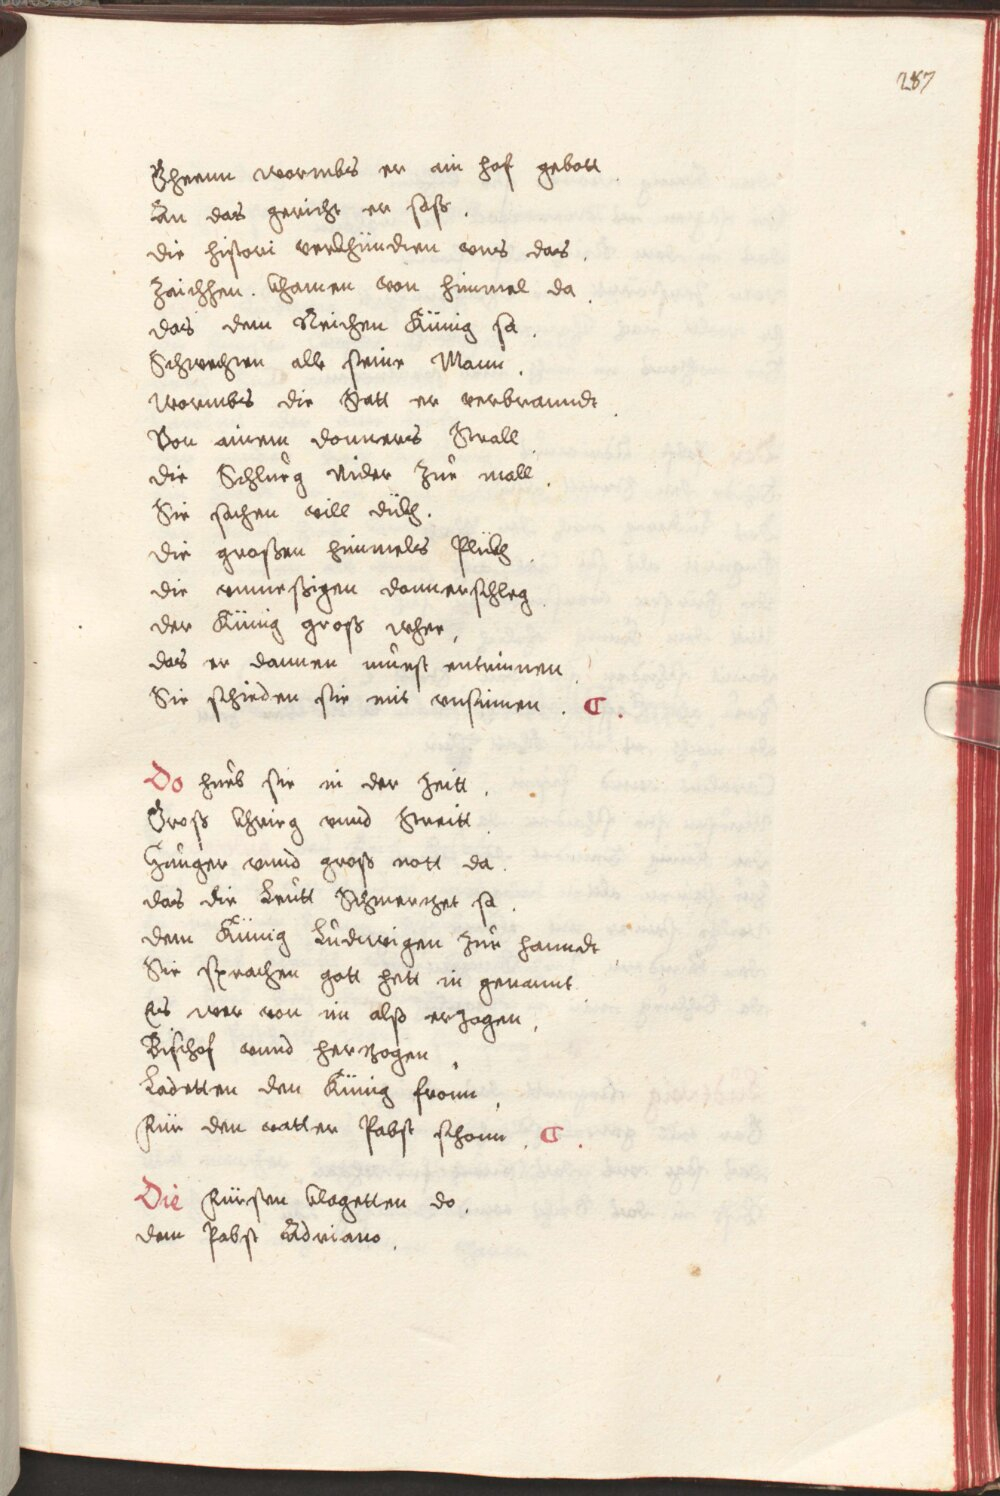 287
Gheenn wormbs er ain hof gebott
An das gericht er saß.
die histori verkhünden vns das.
Zaichhen. khamen von himmel da
das dem Reichen Künig sa.
Schwechten alle seine Mann.
wormbs die Statt er verbranndt
Von ainem donners Strall
die Schlueg nider zur mall.
Sie sachen vill dükh.
die großen himmels Plükh
die vnmeßigen donnerschleg
der Künig groß wher,
das er dannen muest entrinnen
Sie schieden sie mit vnsinnen.
Do hueb sie in der Zeitt.
Groß khrieg vnnd Streitt
Hunger vnnd groß nott da.
das die Leutt Schmerzet sa.
dem Künig Ludwigen zur hanndt
Sie sprachen gott hett in genannt
Es wer von im alß erzogen,
Bischof vnnd herzogen
Ladetten den Künig fronn,
Für den vatter Pabst schonn.
Die Fürsten klagetten do.
dem Pabst Adriano.